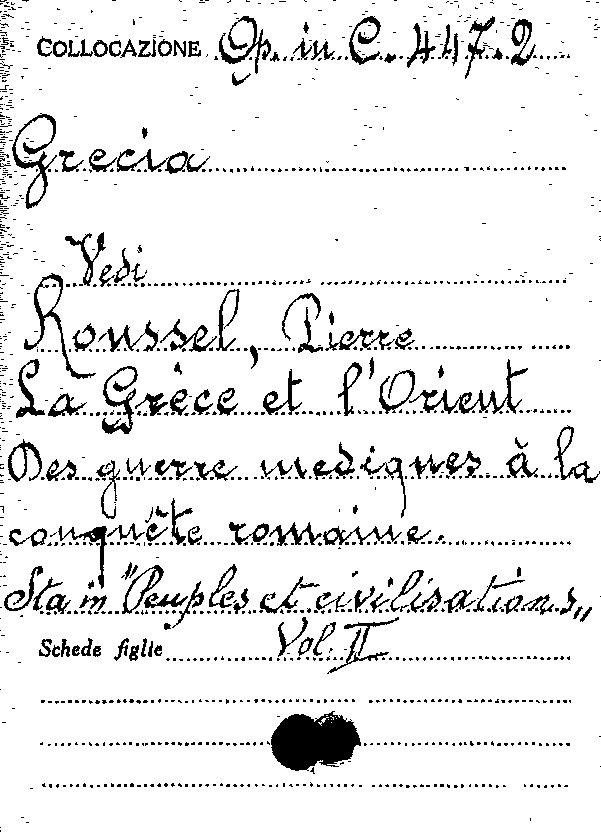 COLLOCAZIONE Op. in C. 447.2
Grecia
Vedi
Roussel, Pierre
La Grèce et l'Orient
Des guerre mediques à la
conquête romaine.
Sta in "Peuples et civilisations"
Schede figlie Vol. II